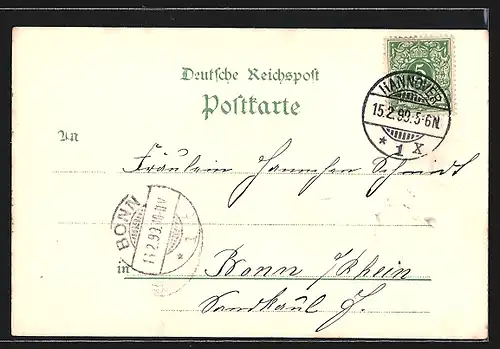 5
Deutsche Reichspost
Postkarte
HANNOVER
15.2.99.5-6N.
* 1 X
An
Fräulein Hannchen Schmidt
BONN
in Bonn /Rhein
Sandkaul